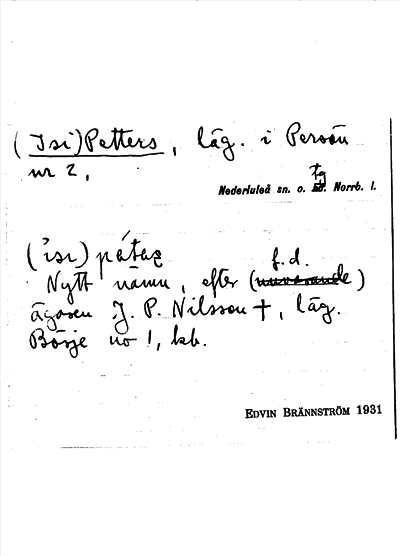 (Isi)Petters, läg. i Persön
nr 2,
Nederluleå sn. o. tg Norrb. l.
(ísi) pátaʂ
f.d.
Nytt namn, efter (nuvarande)
ägaren J. P. Nilsson †, läg.
Börje no 1, kb.
EDVIN BRÄNNSTRÖM 1931